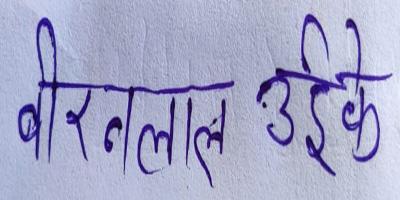 बीरनलाल उईके